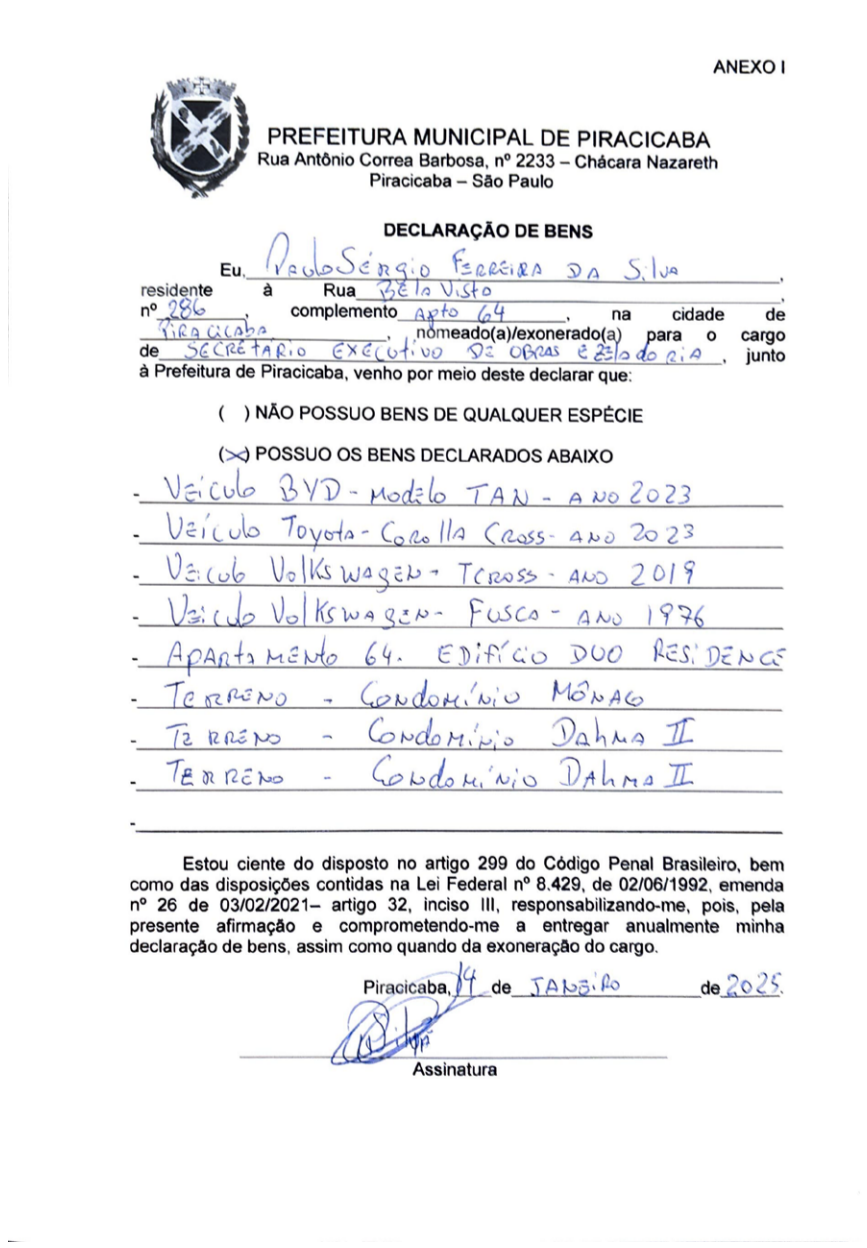 ANEXO I
PREFEITURA MUNICIPAL DE PIRACICABA
Rua Antônio Correa Barbosa, nº 2233 – Chácara Nazareth
Piracicaba – São Paulo
DECLARAÇÃO DE BENS
Eu, Paulo Sérgio Ferreira da Silva,
residente à Rua Bela Vista,
nº 286, complemento Apto 64, na cidade de
Piracicaba, nomeado(a)/exonerado(a) para o cargo
de SECRETARIO EXECUTIVO DE OBRAS E Zeladoria, junto
à Prefeitura de Piracicaba, venho por meio deste declarar que:
( ) NÃO POSSUO BENS DE QUALQUER ESPÉCIE
(X) POSSUO OS BENS DECLARADOS ABAIXO
- Veículo BYD - Modelo TAN - ANO 2023
- Veículo Toyota - Corolla Cross - ANO 2023
- Veiculo Volkswagen - TCROSS - ANO 2019
- Veiculo Volkswagen - FUSCA - ANO 1976
- APARTAMENTO 64. EDIFÍCIO DUO RESIDENCE
- TERRENO - CONDOMÍNIO MÔNACO
- TERRENO - CONDOMÍNIO DAHMA II
- TERRENO - CONDOMÍNIO DAHMA II
-
Estou ciente do disposto no artigo 299 do Código Penal Brasileiro, bem
como das disposições contidas na Lei Federal nº 8.429, de 02/06/1992, emenda
nº 26 de 03/02/2021– artigo 32, inciso III, responsabilizando-me, pois, pela
presente afirmação e comprometendo-me a entregar anualmente minha
declaração de bens, assim como quando da exoneração do cargo.
Piracicaba, 14 de JANEIRO de 2025.
Assinatura